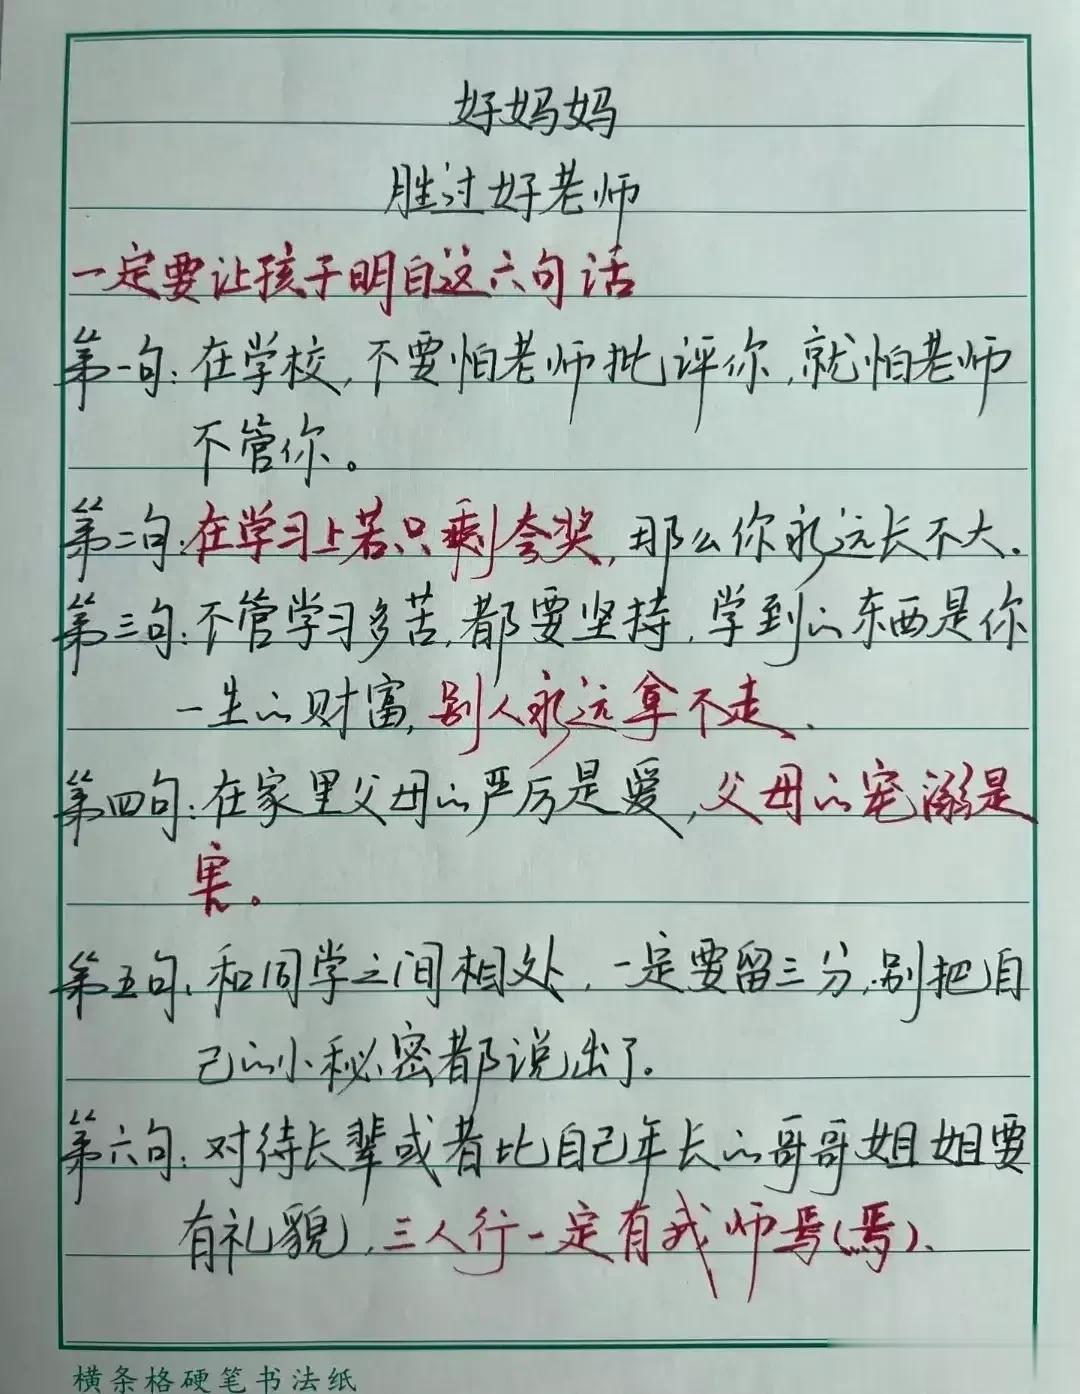 好妈妈
胜过好老师
一定要让孩子明白这六句话
第一句：在学校，不要怕老师批评你，就怕老师
不管你。
第二句：在学习上若只剩夸奖，那么你永远长不大．
第三句：不管学习多苦，都要坚持，学到的东西是你
一生的财富，别人永远拿不走．
第四句：在家里父母的严厉是爱，父母的宠溺是
害。
第五句：和同学之间相处，一定要留三分，别把自
己的小秘密都说出了．
第六句：对待长辈或者比自己年长的哥哥姐姐要
有礼貌，三人行一定有我师焉(焉)．
横条格硬笔书法纸